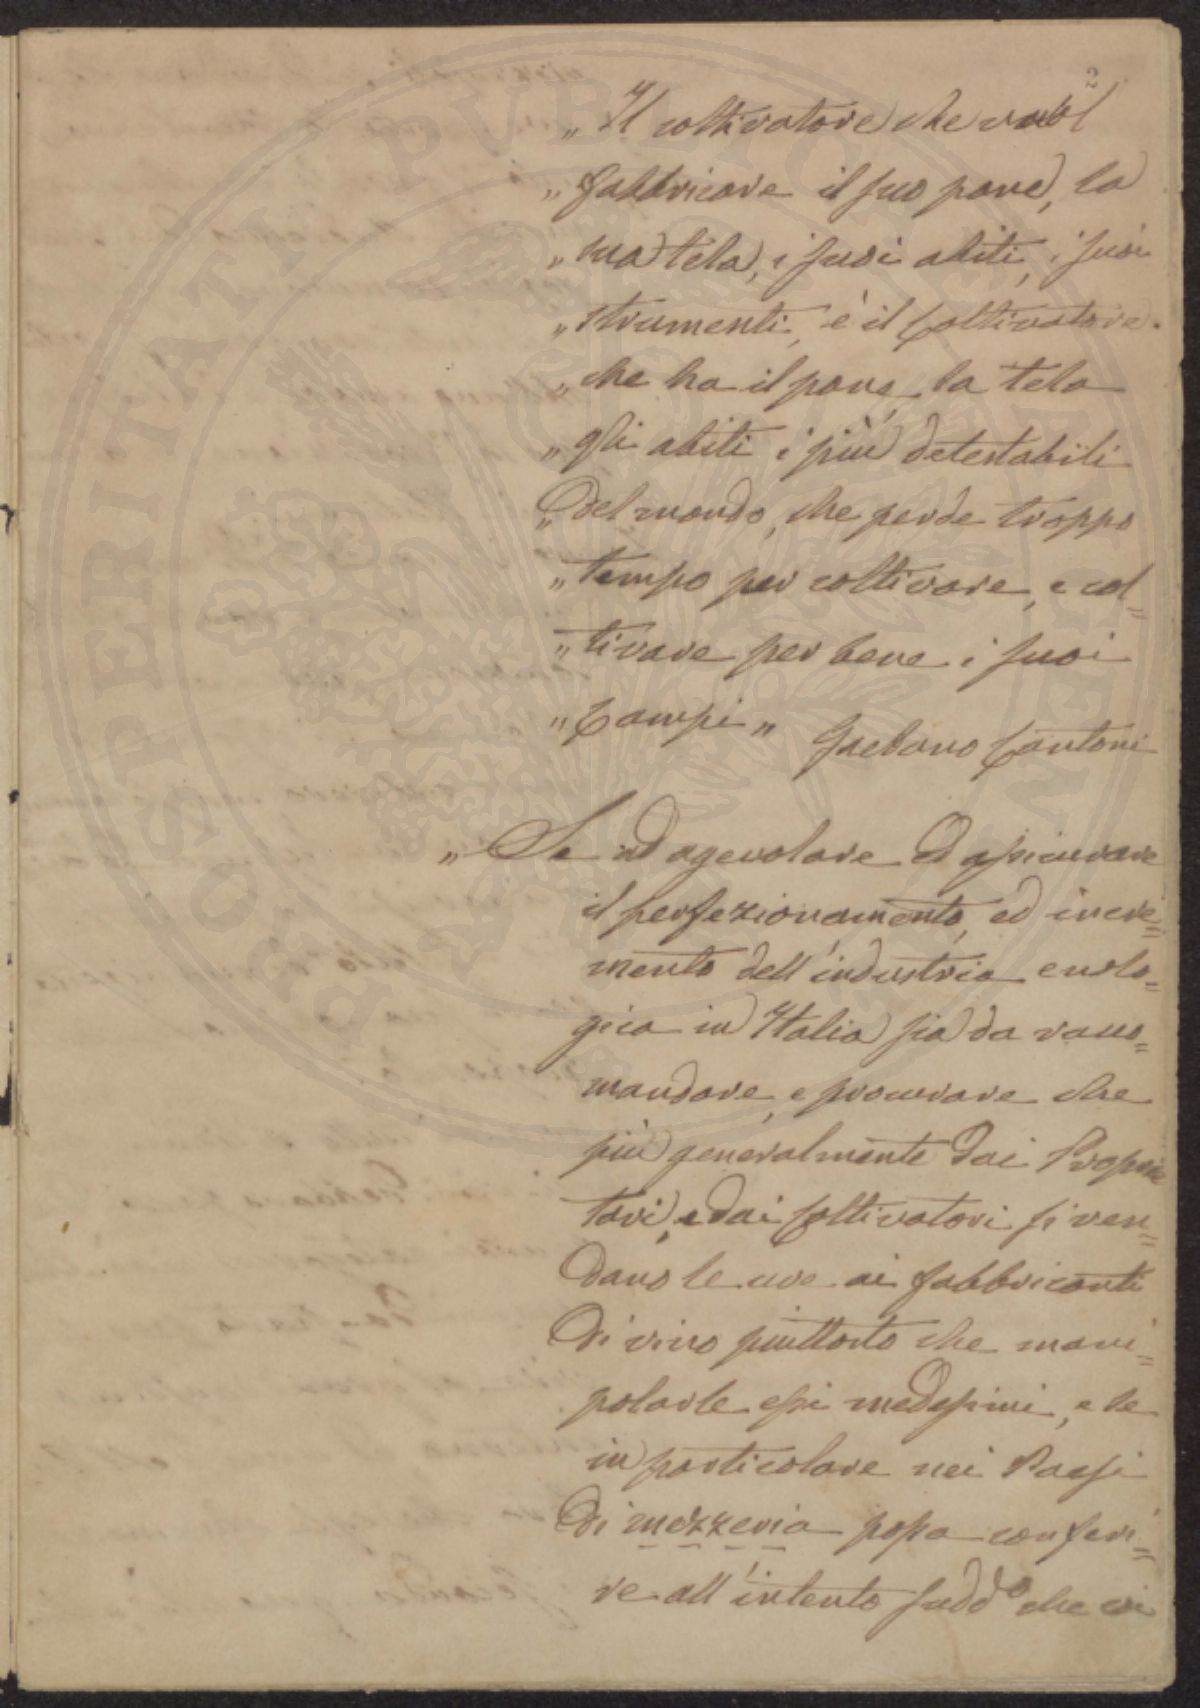 2
„ Il coltivatore che vuol
„ fabbricare il suo pane, la
„ sua tela, i suoi abiti, i suoi
„ strumenti, è il Coltivatore
„ che ha il pane, la tela
„ gli abiti i più detestabili
„ del mondo, che perde troppo
„ tempo per coltivare, e col=
„ tivare per bene i suoi
„ Campi „ Gaetano Cantoni
„ Se ad agevolare ed assicurare
il perfezionamento, ed incre=
mento dell'industria enolo=
gica in Italia sia da racco=
mandare, e procurare che
più generalmente dai Proprie
tari, e dai Coltivatori si ven=
dano le uve ai fabbricanti
di vino piuttosto che mani=
polarle essi medesimi, e se
in particolare nei Paesi
di mezzeria possa conferi=
re all'intento sudd.o che
PROSPERITATI PUBLICAE